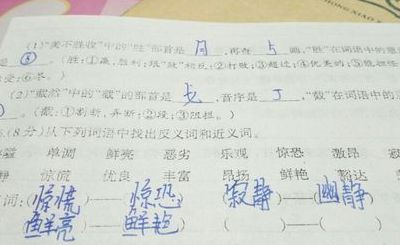 (1)"美不胜收"中的"胜"部首是 月 ,再查 5 画,"胜"在词语中的意
是 ⑧ 。(胜:①赢,胜利;跟"败"相反;②打败;③超过;④优美的;⑤能担任
受;⑥尽。)
(2)"截"中的"截"的部首是 戈 ,音序是 J ,"截"在词语中的
。(截:①割断,弄断;②段;③阻拦。)
(8分)从下列词语中找出反义词和近义词。
单调 鲜亮 恶劣 乐观 惊恐 激昂 寂
静 惊慌 优良 丰富 昂扬 鲜艳 豁达
词:(惊慌)——(惊恐) (寂静)——(幽静)
(鲜亮)——(鲜艳) ( )——( )